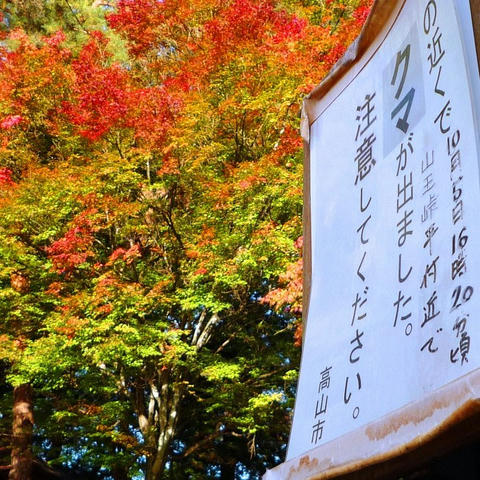 の近くで10月5日16時20分頃
山王峠平村近で
クマが出ました。
注意してください。
高山市